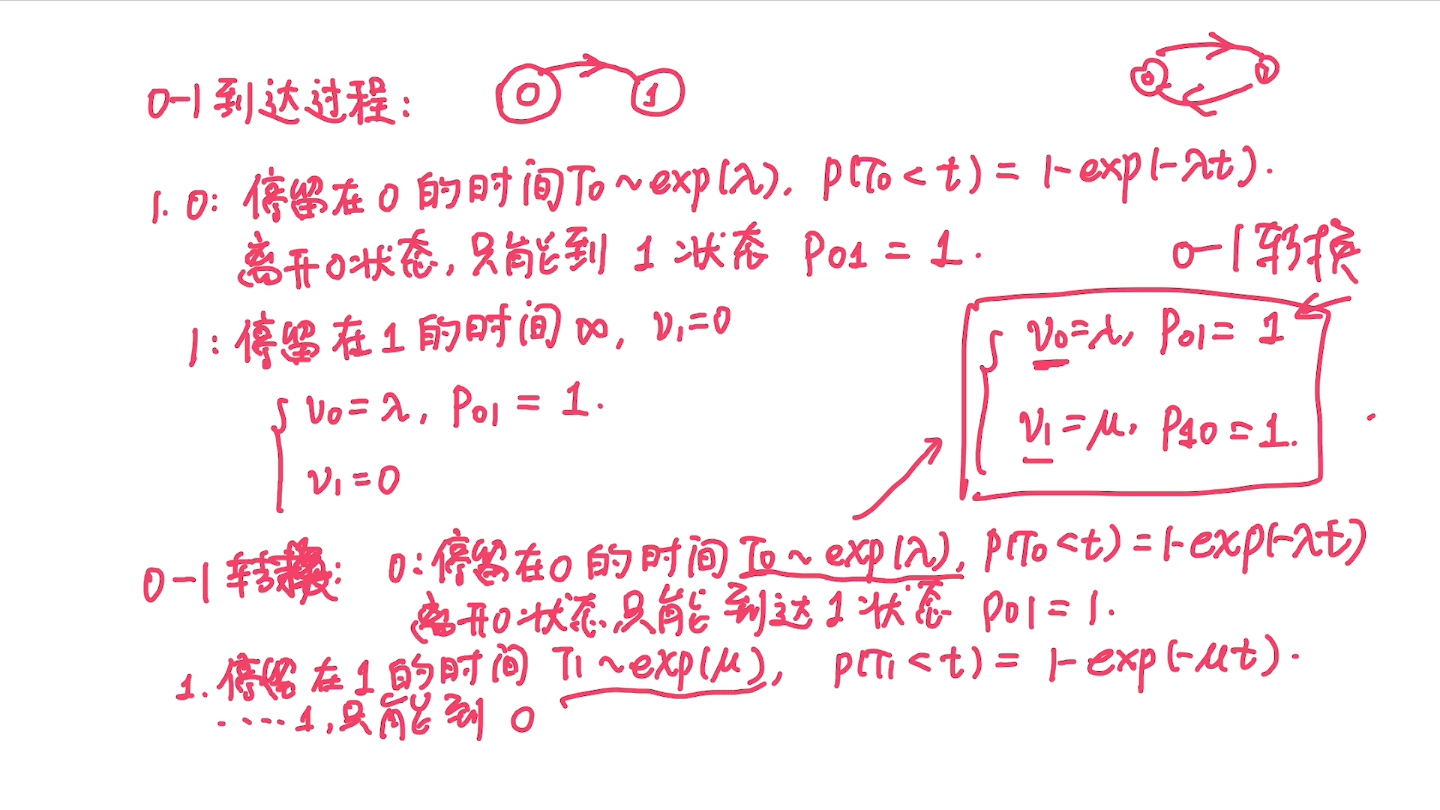 0-1到达过程:
0 1
0 1
1. 0: 停留在 0 的时间 T0 ~ exp(λ), P(T0 < t) = 1-exp(-λt).
离开0状态, 只能到 1 状态 P01 = 1.
0-1转换
1: 停留在 1 的时间 ∞, ν1=0
ν0=λ, P01 = 1
ν0=λ, P01 = 1.
ν1=μ, P10 = 1.
ν1=0
0-1 转换: 0: 停留在0 的时间 T0 ~ exp(λ), P(T0 < t) = 1-exp(-λt)
离开0状态,只能到达1状态 P01 = 1.
1. 停留在1的时间 T1 ~ exp(μ), P(T1 < t) = 1-exp(-μt).
.... 1,只能到 0